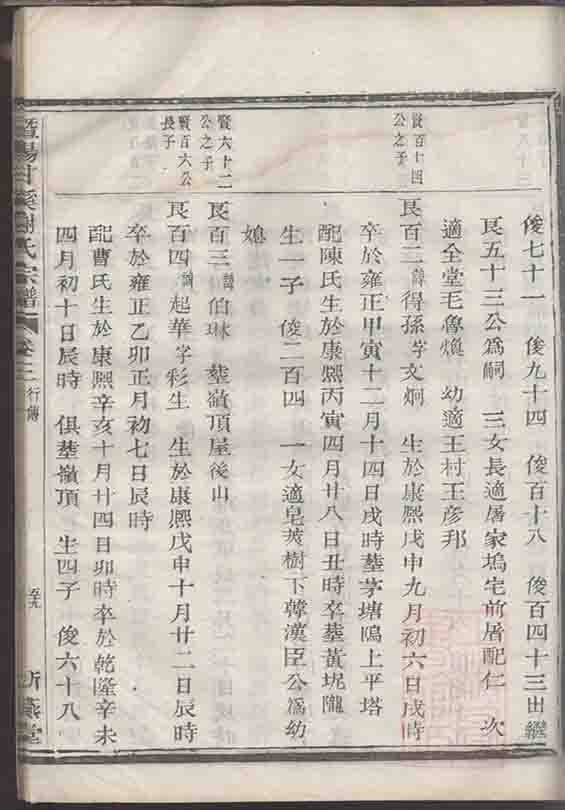 俊七十一 俊九十四 俊百十八 俊百四十三出繼
良五十三公爲嗣 三女長適屠家塢宅前屠配仁 次
適全堂毛魯煥 幼適王村王彥邦
賢百十四
公之子
良百二諱得孫字文炯 生於康熙戊申九月初六日戌時
卒於雍正甲寅十二月十四日戌時塟茅塘塢上平塔
配陳氏生於康熙丙寅四月廿八日丑時卒塟黃坭隴
生一子 俊二百四 一女適皂莢樹下韓漢臣公爲幼
媳
賢六十二
公之子
良百三諱伯琳 塟嶺頂屋後山
賢百六公
長子
良百四諱起華字彩生 生於康熙戊申十月廿二日辰時
卒於雍正乙卯正月初七日辰時
配曹氏生於康熙辛亥十月廿四日卯時卒於乾隆辛未
四月初十日辰時 俱塟嶺頂 生四子 俊六十八
暨陽甘溪謝氏宗譜
卷三
行傳